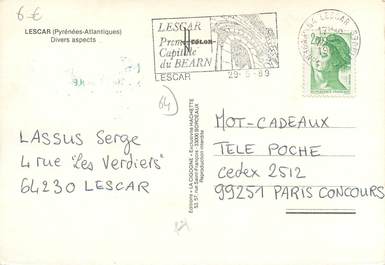 6€
LESCAR (Pyrénées-Atlantiques)
Divers aspects
LESCAR
Première
Capitale
du BEARN
LESCAR
29-5-89
64
LASSUS Serge
4 rue "Les Verdiers"
64230 LESCAR
Editions « LA CIGOGNE » Exclusivité HACHETTE
53, 57, rue Saint-François - 33000 BORDEAUX
Reproduction interdite
MOT-CADEAUX
TELE POCHE
cedex 2512
99251 PARIS CONCOURS